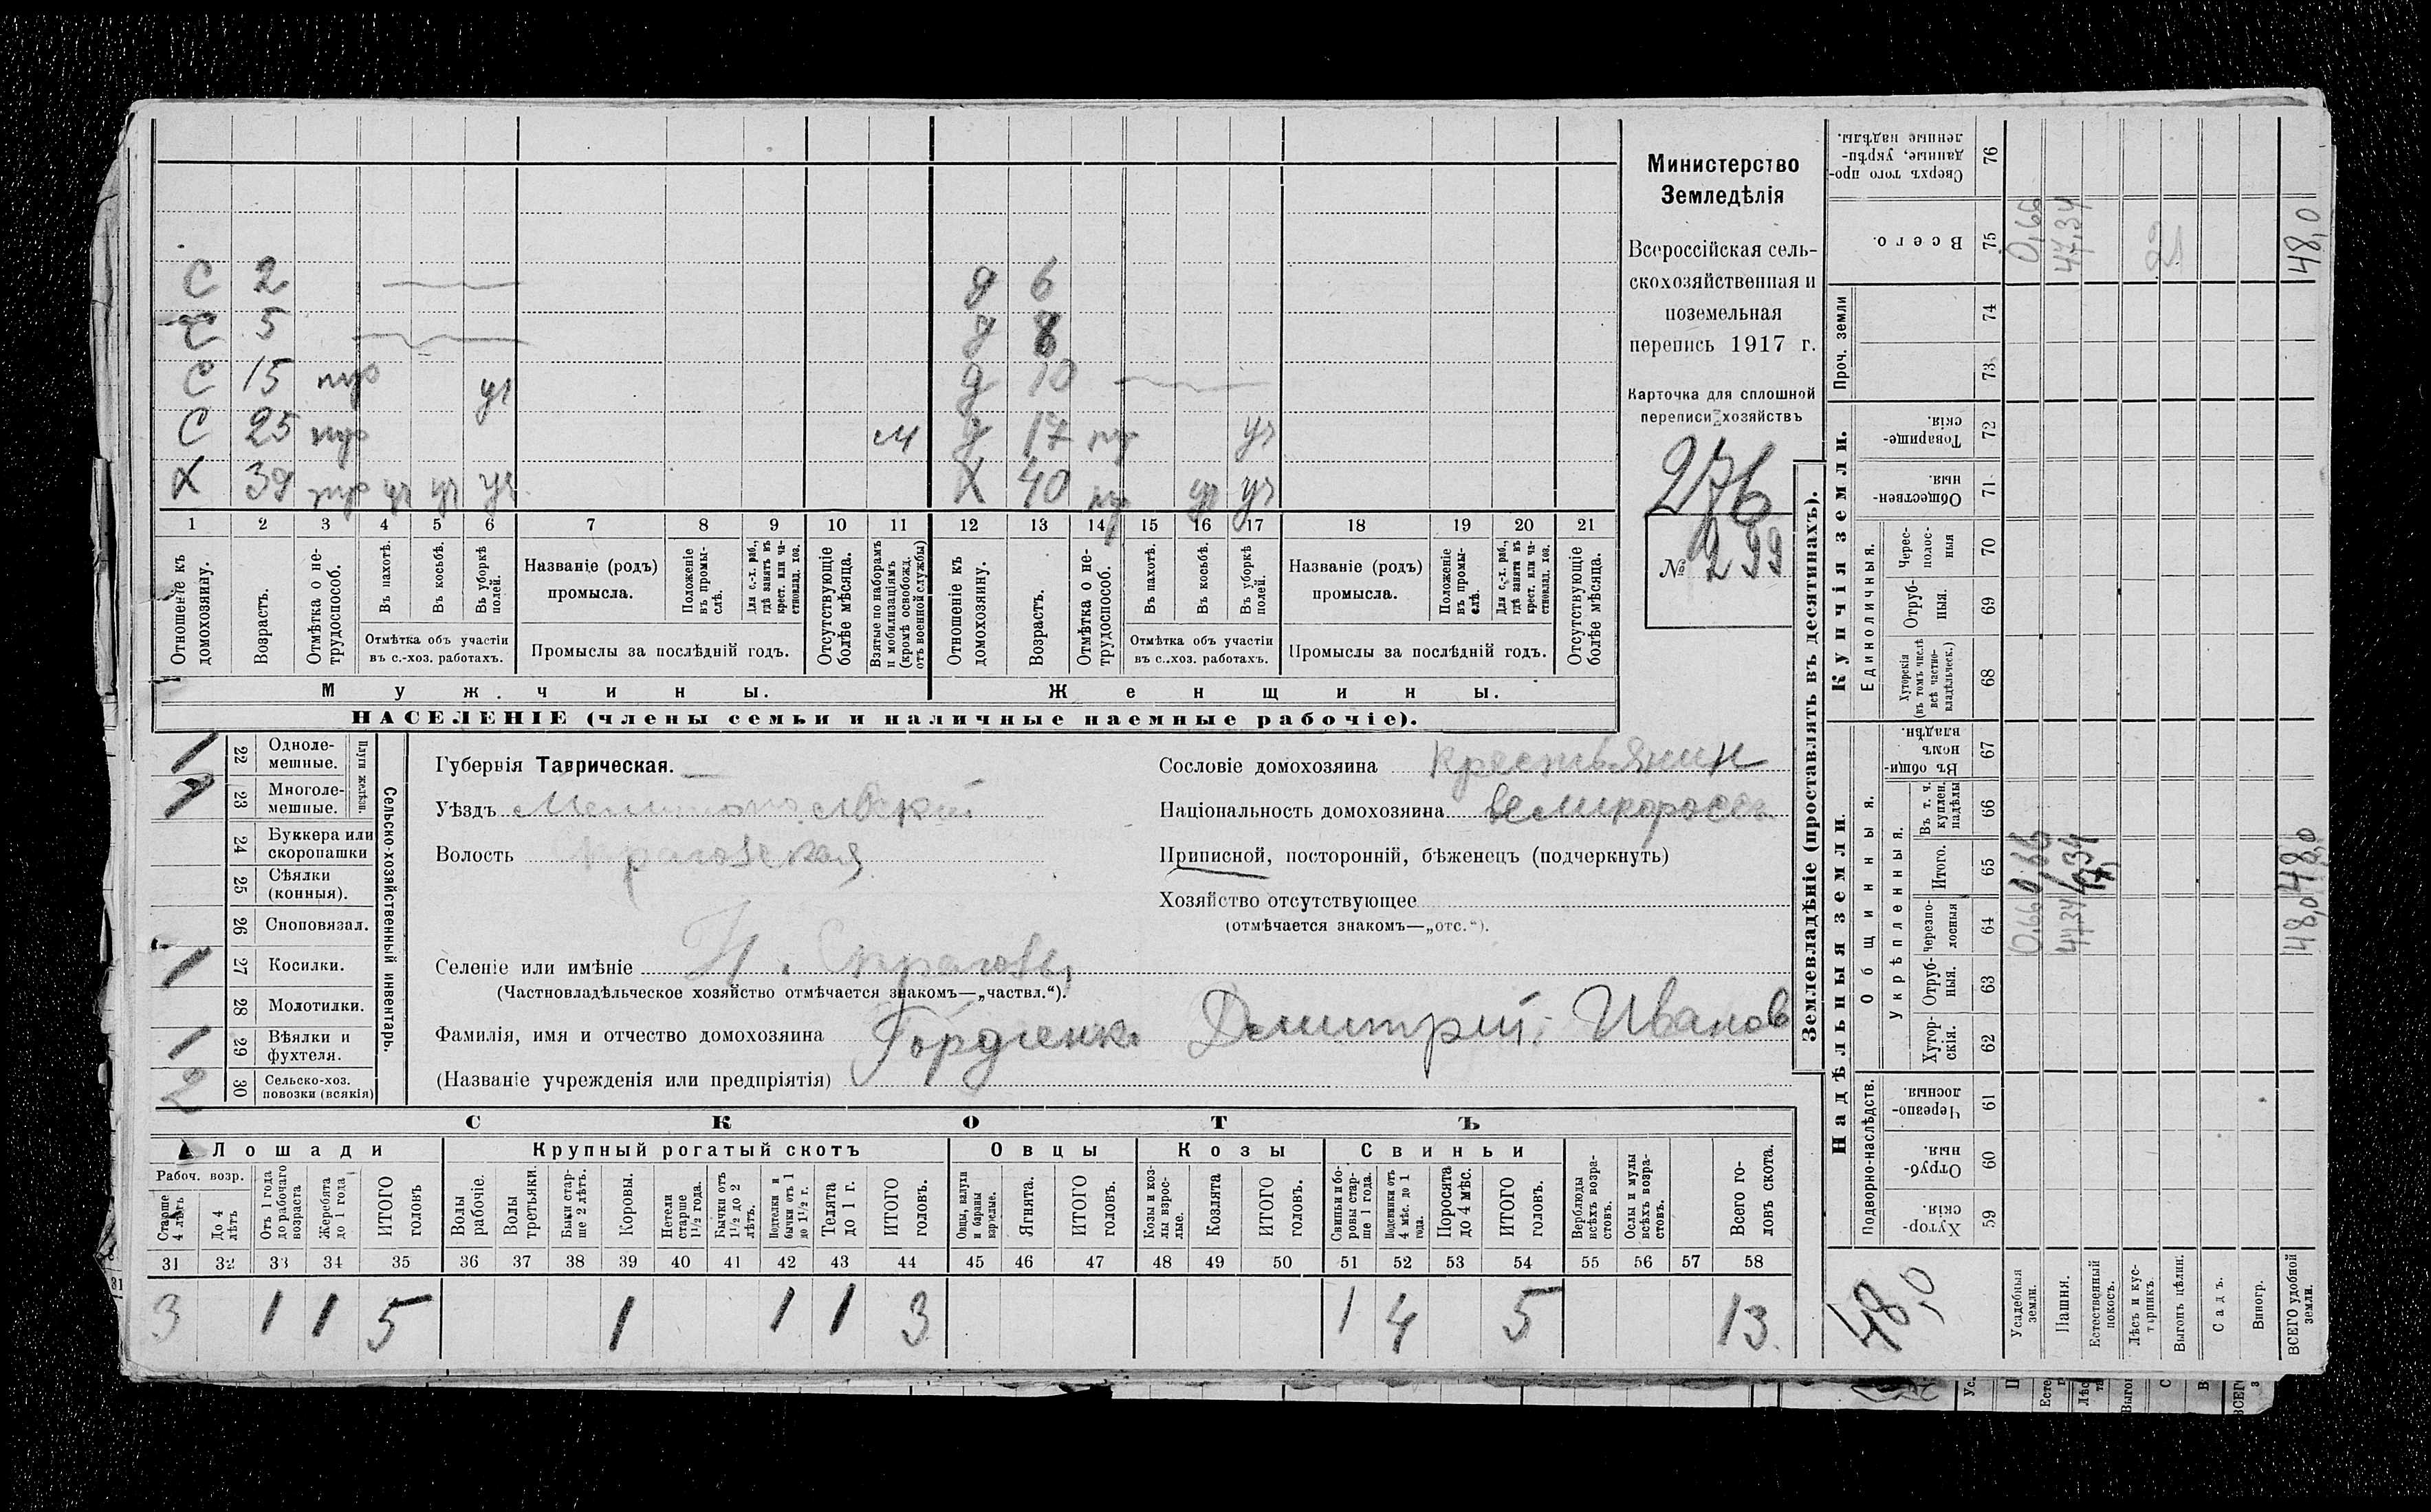 С 2 д 6
С 5 д 8
С 15 уч д 10
С 25 м д 17 уч
Х 39 уч уч уч Х 40 уч уч
1 2 3 4 5 6 7 8 9 10 11 12 13 14 15 16 17 18 19 20 21
Отношеніе къ домохозяину.
Возрастъ.
Отмѣтка о не-трудоспособ.
Въ пахотѣ.
Въ косьбѣ.
Въ уборкѣ полей.
Отмѣтка объ участіи
въ с.-хоз. работахъ.
Названіе (родъ)
промысла.
Положеніе въ промы-слѣ.
Для с.-х. раб., гдѣ занятъ въ крест. или ча-стновлад. хоз.
Промыслы за послѣдній годъ.
Отсутствующіе болѣе мѣсяца.
Взятые по наборамъ и мобилизаціямъ (кромѣ освобожд. отъ военной службы)
Отношеніе къ домохозяину.
Возрастъ.
Отмѣтка о не-трудоспособ.
Въ пахотѣ.
Въ косьбѣ.
Въ уборкѣ полей.
Отмѣтка объ участіи
въ с.-хоз. работахъ.
Названіе (родъ)
промысла.
Положеніе въ промы-слѣ.
Для с.-х. раб., гдѣ занята въ крест. или ча-стновлад. хоз.
Промыслы за послѣдній годъ.
Отсутствующіе болѣе мѣсяца.
Мужчины.
Женщины.
НАСЕЛЕНІЕ (члены семьи и наличные наемные рабочіе).
Министерство
Земледѣлія
Всероссійская сель-
скохозяйственная и
поземельная
перепись 1917 г.
Карточка для сплошной
переписи хозяйствъ
276
№ 299
1 22 Одноле-мешные.
23 Многоле-мешные.
Плуги желѣзн.
24 Буккера или скоропашки
25 Сѣялки (конныя).
26 Сноповязал.
1 27 Косилки.
28 Молотилки.
1 29 Вѣялки и фухтеля.
2 30 Сельско-хоз. повозки (всякія)
Сельско-хозяйственный инвентарь.
Губернія Таврическая.
Уѣздъ Мелитопольскій
Волость
Селеніе или имѣніе Н.
(Частновладѣльческое хозяйство отмѣчается знакомъ—„частвл.“).
Фамилія, имя и отчество домохозяина Гордіенк. Димитрій Иванов
(Названіе учрежденія или предпріятія)
Сословіе домохозяина крестьянин
Національность домохозяина великоросс
Приписной, посторонній, бѣженецъ (подчеркнуть)
Хозяйство отсутствующее
(отмѣчается знакомъ—„отс.“).
СКОТЪ
Лошади
Крупный рогатый скотъ
Овцы
Козы
Свиньи
Рабоч. возр.
Старше 4 лѣтъ
До 4 лѣтъ
Отъ 1 года до рабочаго возраста
Жеребята до 1 года
ИТОГО головъ
Волы рабочіе.
Волы третьяки.
Быки стар-ше 2 лѣтъ.
Коровы.
Нетели старше 1½ года.
Бычки отъ 1½ до 2 лѣтъ.
Подтелки и бычки отъ 1 до 1½ г.
Телята до 1 г.
ИТОГО головъ.
Овцы, валухи и бараны взрослые.
Ягнята.
ИТОГО головъ.
Козы и коз-лы взрос-лые.
Козлята
ИТОГО головъ.
Свиньи и бо-ровы стар-ше 1 года.
Подсвинки отъ 4 мѣс. до 1 года.
Поросята до 4 мѣс.
ИТОГО головъ.
Верблюды всѣхъ возра-стовъ.
Ослы и мулы всѣхъ возра-стовъ.
Всего го-ловъ скота.
31 32 33 34 35 36 37 38 39 40 41 42 43 44 45 46 47 48 49 50 51 52 53 54 55 56 57 58
3 1 1 5 1 1 1 3 1 4 5 13
Землевладѣніе (проставлять въ десятинахъ).
Надѣльныя земли.
Купчія земли.
Проч. земли
Подворно-наслѣдств.
Общинныя.
Укрѣпленныя.
Единоличныя.
Хутор-скія. 59
Отруб-ныя. 60
Черезпо-лосныя 61
Хутор-скія. 62
Отруб-ныя. 63
черезпо-лосныя 64
Итого. 65
Въ т. ч. куплен. надѣлы 66
Въ общин-номъ владѣн. 67
Хуторскія (въ томъ числѣ всѣ частно-владѣльческ.) 68
Отруб-ныя. 69
Черес-полос-ныя 70
Обществен-ныя. 71
Товарище-скія. 72
73
74
Всего. 75
Сверхъ того про-данные, укрѣп-ленные надѣлы. 76
48,0
Усадебныя земли. 0,66 0,66 0,66
Пашня. 47,34 47,34 47,34
Естественный покосъ.
Лѣсъ и кус-тарникъ.
Выгонъ цѣлин.
Садъ.
Виногр.
ВСЕГО удобной земли. 48,0 48,0 48,0